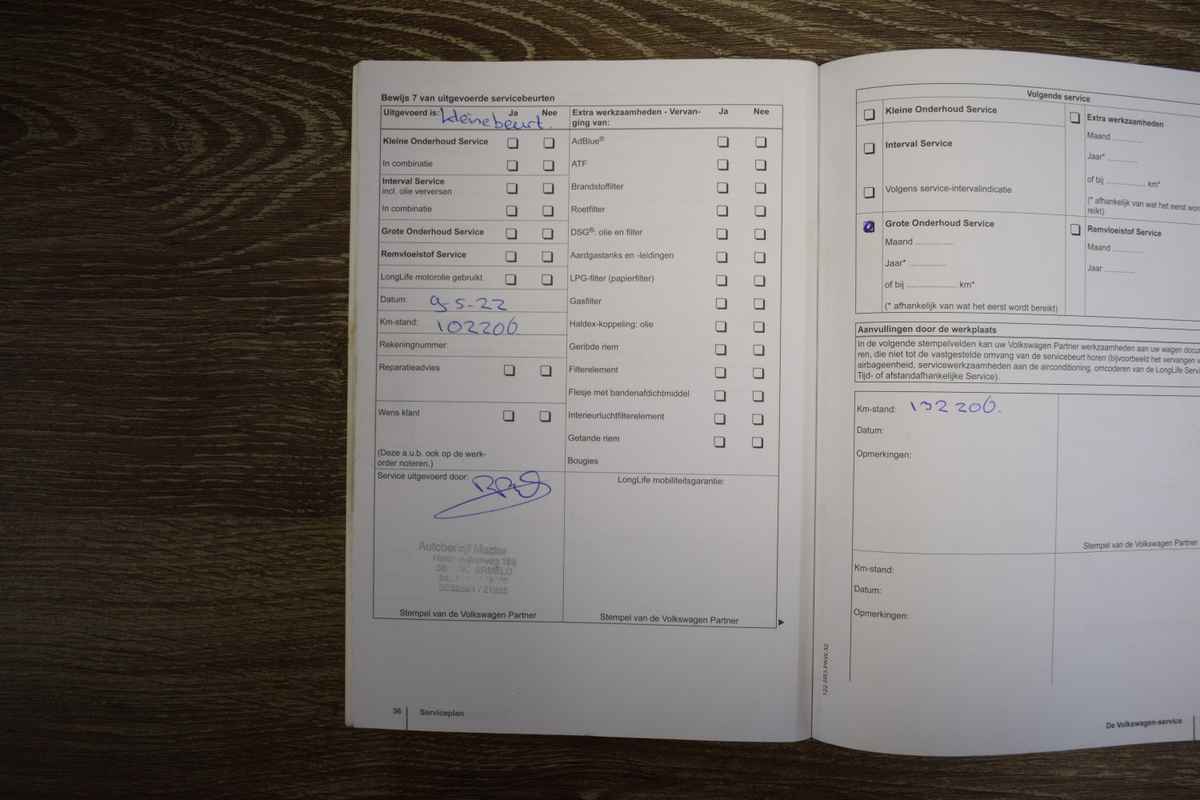 Bewijs 7 van uitgevoerde servicebeurten
Uitgevoerd is: Ja Nee
kleinebeurt.
Kleine Onderhoud Service
In combinatie
Interval Service
incl. olie verversen
In combinatie
Grote Onderhoud Service
Remvloeistof Service
LongLife motorolie gebruikt
Datum: 9-5-22
Km-stand: 102206
Rekeningnummer:
Reparatieadvies
Wens klant
(Deze a.u.b. ook op de werk-
order noteren.)
Service uitgevoerd door:
Autobedrijf Mazier
ERMELO
Stempel van de Volkswagen Partner
Extra werkzaamheden - Vervan- Ja Nee
ging van:
AdBlue®
ATF
Brandstoffilter
Roetfilter
DSG®: olie en filter
Aardgastanks en -leidingen
LPG-filter (papierfilter)
Gasfilter
Haldex-koppeling: olie
Geribde riem
Filterelement
Flesje met bandenafdichtmiddel
Interieurluchtfilterelement
Getande riem
Bougies
LongLife mobiliteitsgarantie:
Stempel van de Volkswagen Partner
36 Serviceplan
Volgende service
Kleine Onderhoud Service
Interval Service
Volgens service-intervalindicatie
Grote Onderhoud Service
Maand
Jaar*
of bij km*
(* afhankelijk van wat het eerst wordt bereikt)
Extra werkzaamheden
Maand
Jaar*
of bij km*
(* afhankelijk van wat het eerst wor
reikt)
Remvloeistof Service
Maand
Jaar
Aanvullingen door de werkplaats
In de volgende stempelvelden kan uw Volkswagen Partner werkzaamheden aan uw wagen docu
ren, die niet tot de vastgestelde omvang van de servicebeurt horen (bijvoorbeeld het vervangen v
airbageenheid, servicewerkzaamheden aan de airconditioning, omcoderen van de LongLife Servi
Tijd- of afstandafhankelijke Service).
Km-stand: 132206.
Datum:
Opmerkingen:
Stempel van de Volkswagen Partner
Km-stand:
Datum:
Opmerkingen:
De Volkswagen-service